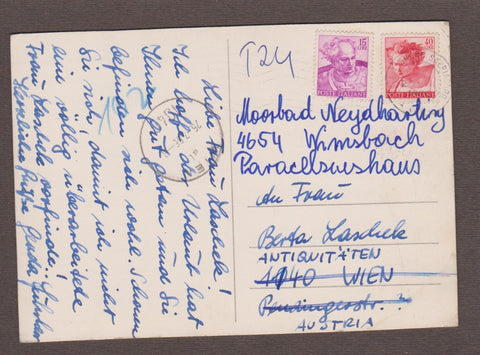 Liebe Frau Laschek!
Ich hoffe der Urlaub hat
Ihnen gut getan und Sie
befinden sich wohl. Schonen
Sie sich, damit ich nicht
eine völlig überarbeitete
Frau Laschek vorfinde!
Herzliche Grüße Gerda
T24
15
LIRE
POSTE ITALIANE
40
LIRE
POSTE ITALIANE
Moorbad Neydharting
4654 Wimsbach
Paracelsushaus
An Frau
Berta Laschek
ANTIQUITÄTEN
1140 WIEN
Penzingerstr. ?
AUSTRIA